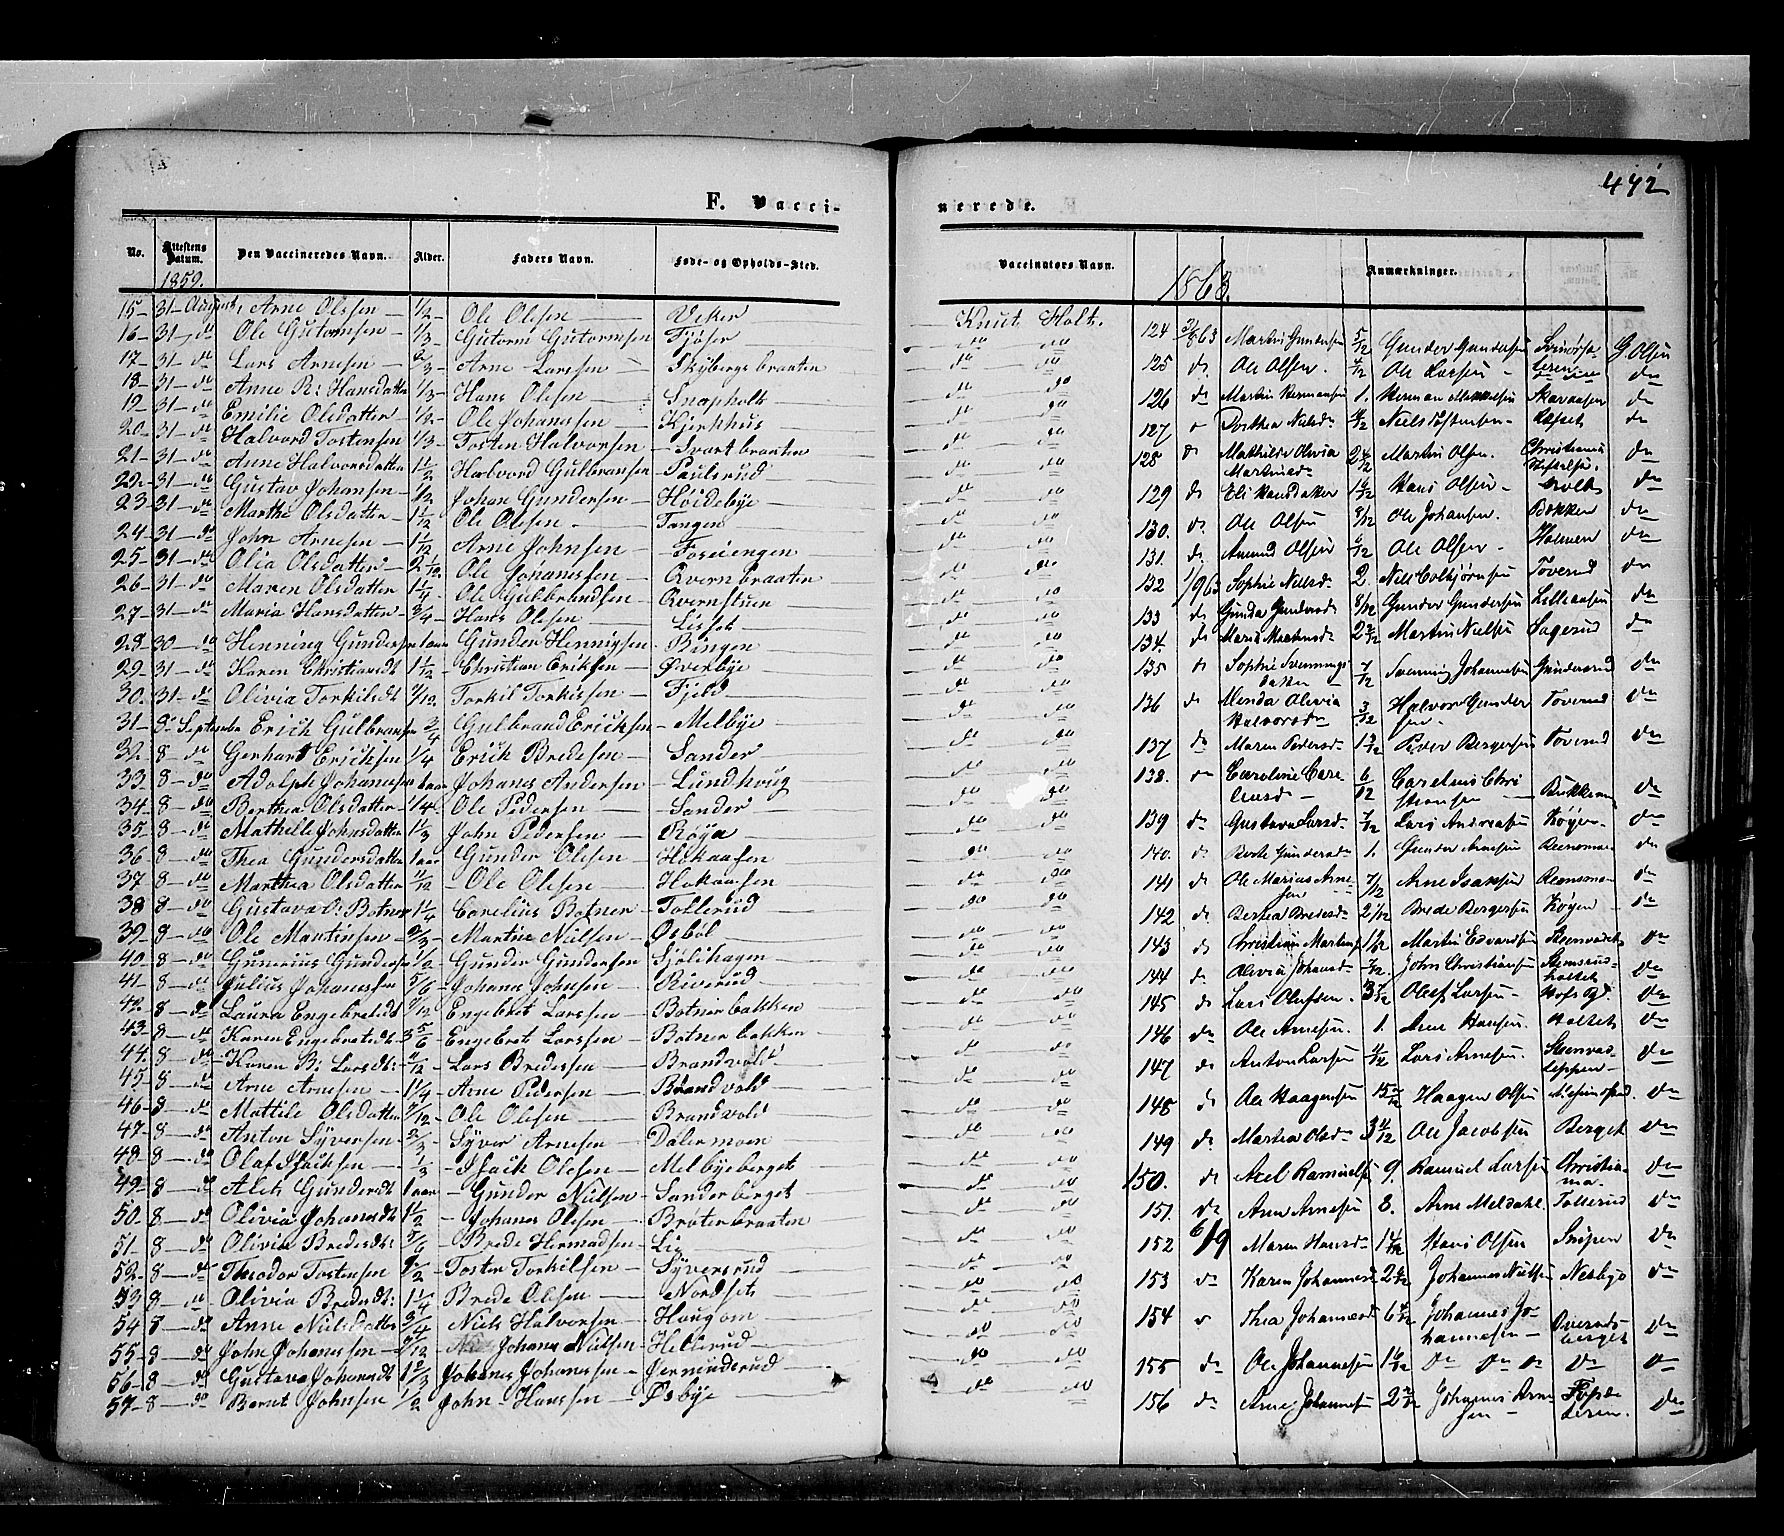 442
F. Vacci-
neredt.
No. Attestens Datum. Den Vaccineredes Navn. Alder. Faders Navn. Føde- og Opholds-Sted.
Vaccinators Navn. Anmærkninger.
1859.
1863.
15 31 August Arne Olssen 1/2 Ole Olsen Veker Knut Holt.
16 31 do Ole Gutormsen 1/3 Gutorm Gutormsen Fjøser do do
17 31 do Lars Arnesen 2/3 Arne Larssen Skybergsbraaten do do
18 31 do Anne R: Hansdatter 1/3 Hans Olsen Snapholt do do
19 31 do Emilie Olsdatter 1/2 Ole Johanssen Kjerkhus do do
20 31 do Halvord Tostensen 1/3 Tosten Halvorsen Svartbraaten do do
21 31 do Anne Halvorsdatter 1 1/2 Halvord Gulbransen Paulsrud do do
22 31 do Gustav Johansen 1/2 Johan Gundersen Høidebye do do
23 31 do Marthe Olsdatter 1 1/12 Ole Olesen Tangen do do
24 31 do John Arnesen 1 1/12 Arne Johnsen Foseiengen do do
25 31 do Olia Olsdatter 2 1/12 Ole Johanssen Qvernbraaten do do
26 31 do Maren Olsdatter 1 1/4 Ole Gulbrandsen Qvernstuen do do
27 31 do Maria Hansdatter 3/4 Hans Olsen Lisset do do
28 30 do Henning Gundersen 1 aar Gunder Hennigsen Bingen do do
29 31 do Karen Christiansdt 1 1/12 Christian Eriksen Øverbye do do
30 31 do Olivia Torkilsdt 7/12 Torkil Torkilssen Fjeld do do
31 8 September Erich Gulbransen 3/4 Gulbrand Ericksen Melbye do do
32 8 do Gerhart Ericksen 1/4 Erick Bredesen Sander do do
33 8 do Adolph Johanssen 1 aar Johanes Andersen Lundhoug do do
34 8 do Berthea Olsdatter 1/4 Ole Pedersen Sander do do
35 8 do Mathille Johnsdatter 1 1/3 John Pedersen Røya do do
36 8 do Thea Gundersdatter 1 aar Gunder Olesen Hokaasen do do
37 8 do Marthea Olsdatter 11/12 Ole Olesen Hokaasen do do
38 8 do Gustava O: Botner 1 1/4 Carelius Botner Tollerud do do
39 8 do Ole Martinsen 2/3 Martin Nielsen Øsbøl do do
40 8 do Gunerius Gundersen 1/2 Gunder Gundersen Sjølihagen do do
41 8 do Julius Johanssen 5/6 Johanes Johnsen Riverud do do
42 8 do Laura Engebretsdt 7/12 Engebret Larssen Botnerbakken do do
43 8 do Karen Engebretsdt 3 5/6 Engebret Larssen Botnerbakken do do
44 8 do Karen B: Larsdt: 11/12 Lars Bredessen Brandvold do do
45 8 do Arne Arnesen 1 1/4 Arne Pedersen Brandvold do do
46 8 do Mattile Olsdatter 7/12 Ole Olesen Brandvold do do
47 8 do Anton Syversen 2/3 Syver Arnesen Dalermoen do do
48 8 do Olaf Isacksen 1/3 Isack Olesen Melbyeberget do do
49 8 do Alets Gundersdt 1 aar Gunder Nielsen Sanderberget do do
50 8 do Olivia Johansdt 1 1/2 Johanes Olesen Brøterbraaten do do
51 8 do Olivia Bredesdt: 5/6 Brede Hermansen Lie do do
52 8 do Theodor Tostensen 1/2 Tosten Torkilsen Syversrud do do
53 8 do Olivia Bredesdt: 1 1/4 Brede Olesen Nordset do do
54 8 do Anne Nielsdatter 3/4 Niels Halvorsen Haugom do do
55 8 do John Johanssen 7/12 Johanes Nielsen Hellerud do do
56 8 do Gustava Johansdt 1 2/3 Johanes Johanssen Germundsrud do do
57 8 do Bernt Johnsen 1/2 John Hanssen Øsbye do do
124 3/8 63 Martin Gundersen 5/12 Gunder Gundersen G Olsen
125 do Ole Olsen. 4/12 Ole Larsen do
126 do Martin Hermansen 1. Herman Mikkelsen Skaraasen do
127 Dorthea Nielsd 4/12 Niels Torstensen do
128 do Mathilde Olivia Martinsd 2 Martin Olsen. Christiania do
129 do Eli Hansdatter Hans Olsen do
130. do Ole Olsen 8/12 Ole Johansen. Bakken do
131. do Amund Olsen 6/12 Ole Olsen Holmen do
132 1/9 63 Sophie Nielsd 2. Niels Colbjørnsen Toverud do
133 do Gunda Gundersd 8/12 Gunder Gundersen Lilleaasen do
134. do Maria Martinsd 2 Martin Nielsen Sagerud do
135 Sophie Svenningsdatter 7/12 Svenning Johannesen Gundersrud do
136 do Menda Olivia Halvorsd 3/12 Halvor Gundersen Toverud do
137 do Maren Pedersd 1 Peder Bergersen Toverud do
138. Caroline Careliusd 6/12 Carelius Christiansen Bekken do
139 do Gustava Larsd 7/12 Lars Andreasen Køyen do
140. do Berte Gundersd 1. Gunder Arnesen do
141 do Ole Marius Arnesen 7/12 Arne Isaksen do
142 do Berthea Bredesd 2 1/12 Brede Bergersen Køyen do
143 do Christian Martins Martin Edvardsen do
144 do Olivia Johansd 7/12 John Christiansen do
145 do Lars Olafsen. 3 Olaf Larsen do
146 do Ole Arnesen. 1. Arne Hansen Holtet do
147 do Anton Larsen Lars Arnesen. do
148 do Ole Haagensen Haagen Olsen do
149 do Marthea Olsd 3 Ole Jacobsen Berget do
150. do Axel Ramuelsen 9. Ramuel Larsen Christiania. do
151. do Arne Arnesen 8. Arne Meldahl. Tollerud do
152 6/9 Maren Hansd Hans Olsen Snipen do
153 do Karen Johannesd Johannes Nielsen Nesbye do
154 Thea Johannesd 6 Johannes Johannesen do
155 do Ole Johannesen 1 do do do do do
156 do Arne Johannesen 2 Johannes Arnesen do